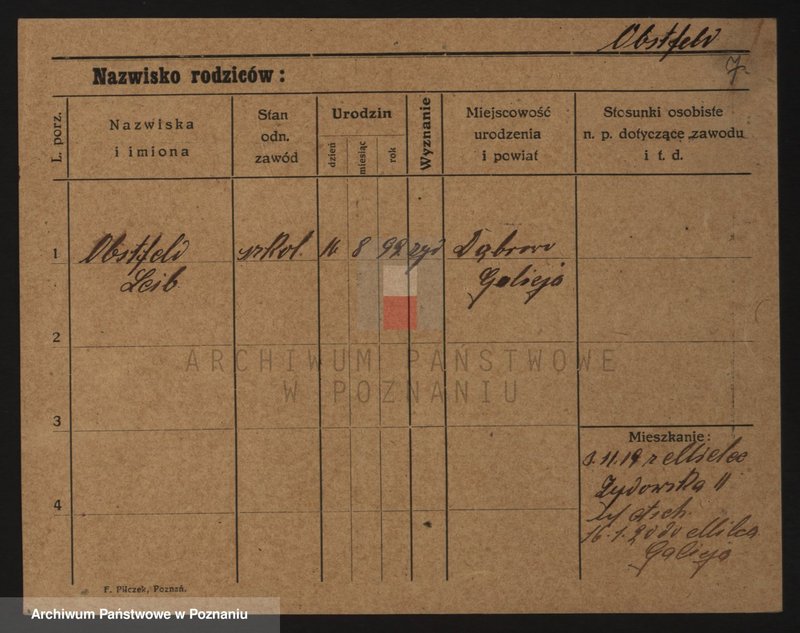 Obstfeld
7
Nazwisko rodziców:
L. porz.
Nazwiska
i imiona
Stan
odn.
zawód
Urodzin
dzień
miesiąc
rok
Wyznanie
Miejscowość
urodzenia
i powiat
Stosunki osobiste
n. p. dotyczące zawodu
i t. d.
1
Obstfeld
Leib
szkol.
16
8
99
żyd
Dąbrowa
Galicja
2
ARCHIWUM PAŃSTWOWE
W POZNANIU
3
4
Mieszkanie:
3.11.19 z Mielec
Żydowska 11
16.1.20 do Mielca
Galicja
F. Pilczek, Poznań.
Archiwum Państwowe w Poznaniu